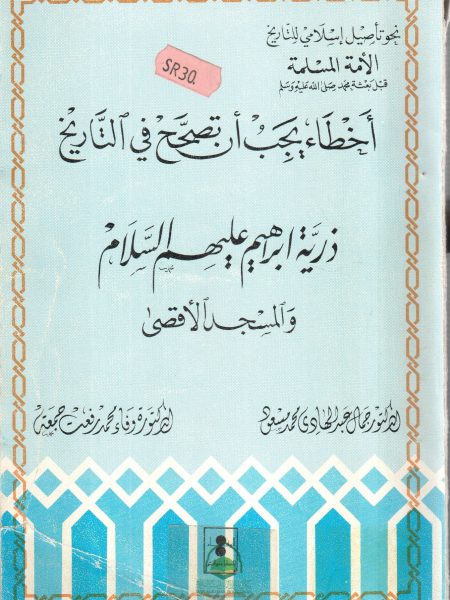 نحو تأصيل إسلامي للتاريخ
الأمة المسلمة
قبل بعثة محمد صلى الله عليه وسلم
SR30.
أخطاء يجب أن تصحح في التاريخ
ذرية ابراهيم عليهم السلام
والمسجد الأقصى
الدكتور جمال عبد الهادي محمد مسعود
الدكتورة وفاء محمد رفعت جمعة